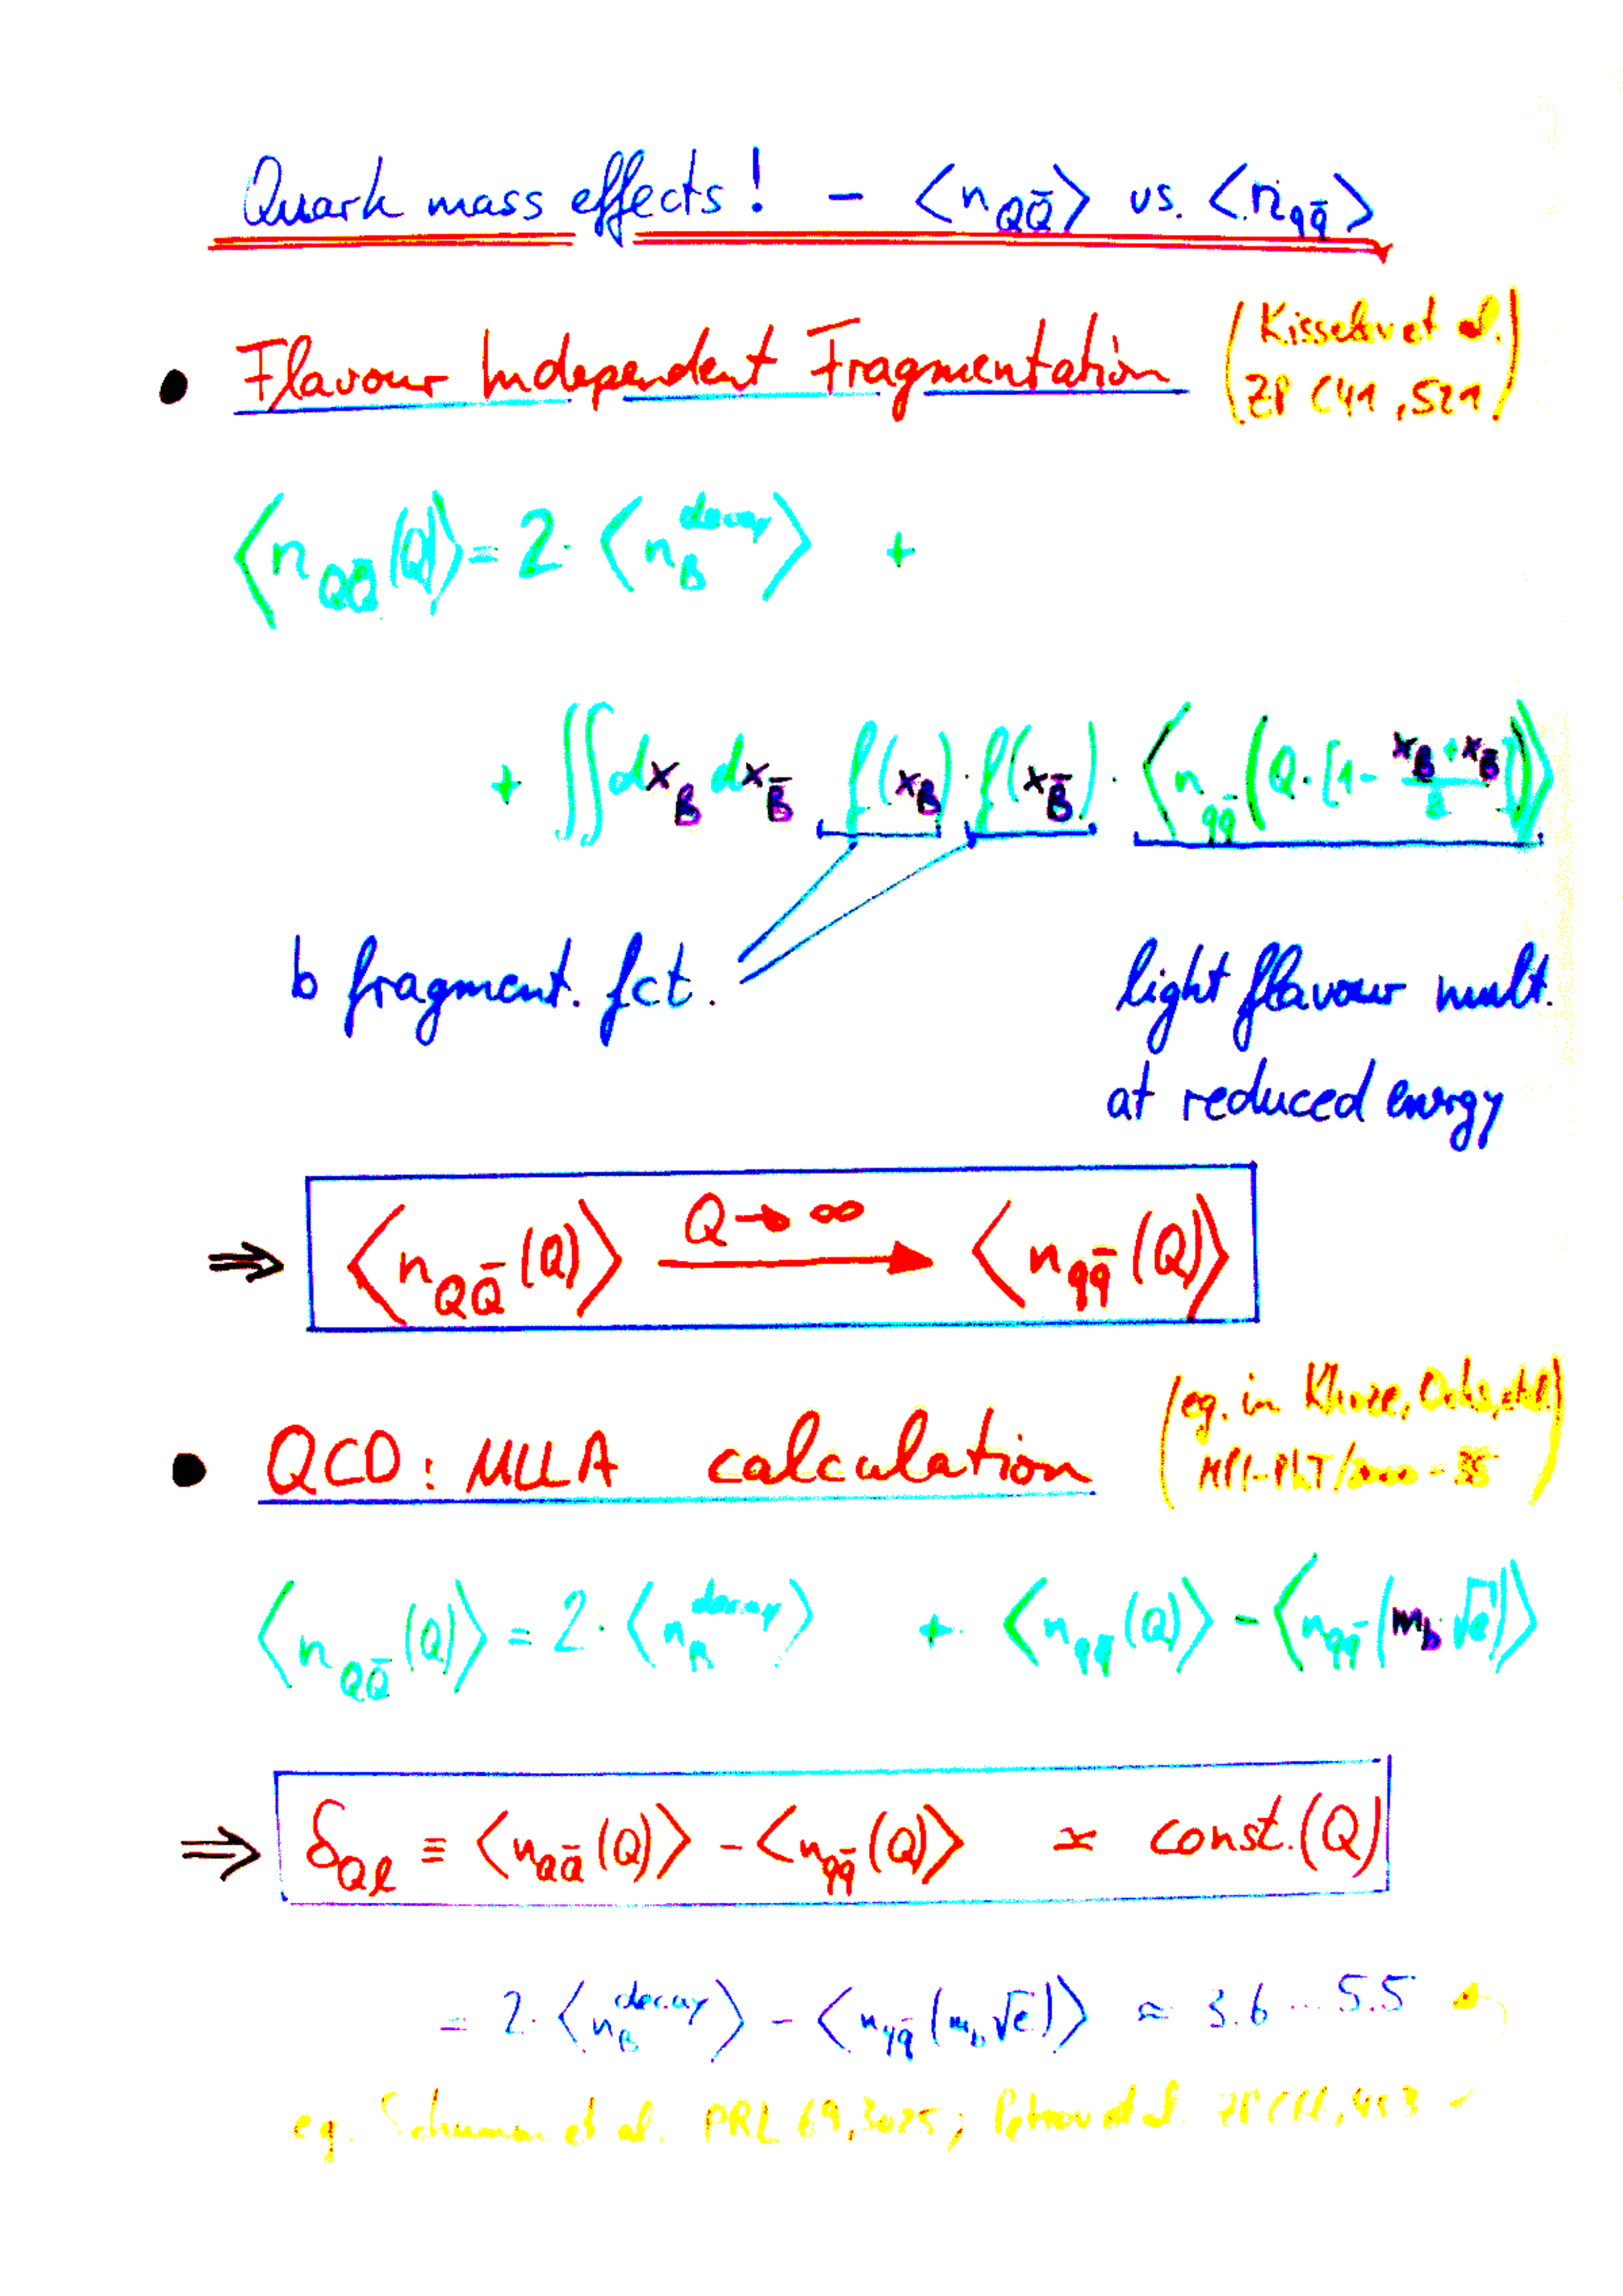 Quark mass effects! – ⟨n_QQ̄⟩ vs. ⟨n_qq̄⟩
• Flavour Independent Fragmentation (Kisselev et al.
ZP C41, 521)
⟨n_QQ̄(Q)⟩ = 2· ⟨n_B^decay⟩ +
+ ∬dx_B dx_B̄ f(x_B)·f(x_B̄)· ⟨n_qq̄(Q·[1- (x_B+x_B̄)/2])⟩
b fragment. fct. light flavour mult.
at reduced energy
⇒ ⟨n_QQ̄(Q)⟩ Q→∞ ⟶ ⟨n_qq̄(Q)⟩
• QCD: MLLA calculation (eg. in Khoze, Ochs,
MPI-PhT/
⟨n_QQ̄(Q)⟩ = 2· ⟨n_B^decay⟩ + ⟨n_qq̄(Q)⟩ - ⟨n_qq̄(m_b·√e)⟩
⇒ δ_Qℓ ≡ ⟨n_QQ̄(Q)⟩ - ⟨n_qq̄(Q)⟩ ≍ const.(Q)
= 2· ⟨n_B^decay⟩ - ⟨n_qq̄(m_b√e)⟩ ≈ 3.6 ... 5.5
eg. et al. PRL 69, 3025; Petrov et al.